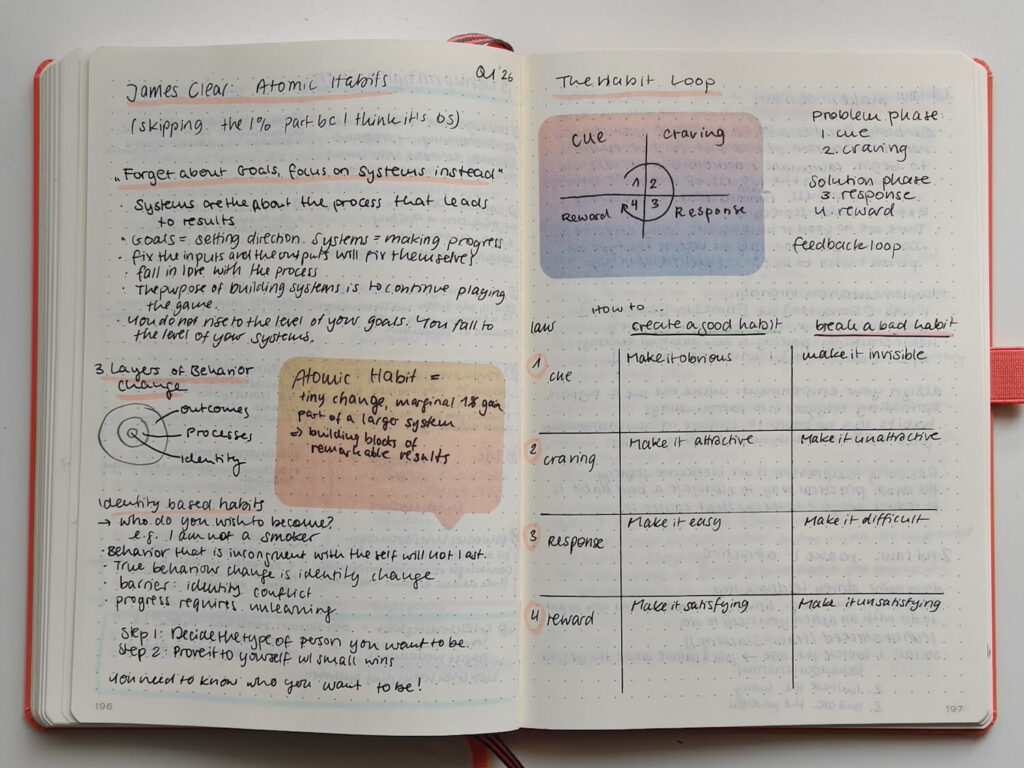 Q1 '26
James Clear: Atomic Habits
(skipping the 1% part bc I think it's bs)
„Forget about Goals, focus on Systems instead"
· Systems are the about the process that leads
to results
· Goals = setting direction. Systems = making progress
· fix the inputs and the outputs will fix themselves
· fall in love with the process
· The purpose of building systems is to continue playing
the game.
· You do not rise to the level of your goals. You fall to
the level of your systems.
3 Layers of Behavior
Change
outcomes
Processes
identity
Atomic Habit =
tiny change, marginal 1% gain
part of a larger system
⇒ building blocks of
remarkable results
Identity based habits
→ who do you wish to become?
e.g. I am not a smoker
· Behavior that is incongruent with the self will not last.
· True behaviour change is identity change
· barrier: identity conflict
· progress requires unlearning
Step 1: Decide the type of person you want to be.
Step 2: Prove it to yourself w/ small wins
You need to know who you want to be!
196
The Habit Loop
cue
craving
1 2
4 3
Reward
Response
Problem phase:
1. cue
2. craving
Solution phase
3. response
4. reward
feedback loop
How to ...
law
create a good habit
break a bad habit
1 cue
Make it obvious
make it invisible
2 craving
Make it attractive
Make it unattractive
3 Response
Make it easy
Make it difficult
4 reward
Make it satisfying
Make it unsatisfying
197